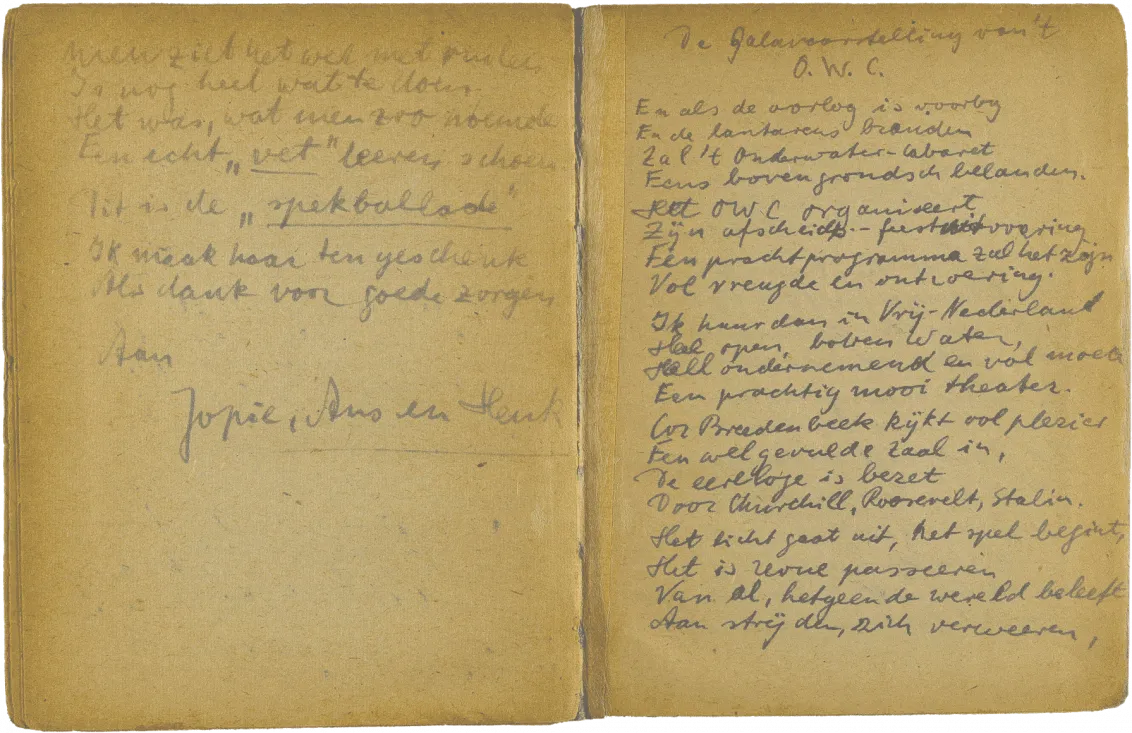 men ziet het wel met vullen
Is nog heel wat te doen.
Het was, wat men zoo noemde
Een echt „vet" leeren schoen.
Dit is de „spekballade"
Ik maak haar ten geschenk
Als dank voor goede zorgen
Aan
Jopie, Ans en Henk
De Galavoorstelling van 't
O. W. C.
En als de oorlog is voorby
En de lantarens branden
Zal 't Onderwater-Cabaret
Eens bovengrondsch belanden.
Het OWC organiseert
Zijn afscheids-feestuitvoering
Een prachtprogramma zal het zijn
Vol vreugde en ontroering.
Ik huur dan in Vrij-Nederland
Heel open, boven water,
Heel ondernemend en vol moed
Een prachtig mooi theater.
Cor Breedenbeek kijkt vol plezier
Een welgevulde zaal in,
De eereloge is bezet
Door Churchill, Roosevelt, Stalin.
Het licht gaat uit, het spel begint,
Het is revue passeeren
Van al, hetgeen de wereld beleeft
Aan strijden, zich verweeren,